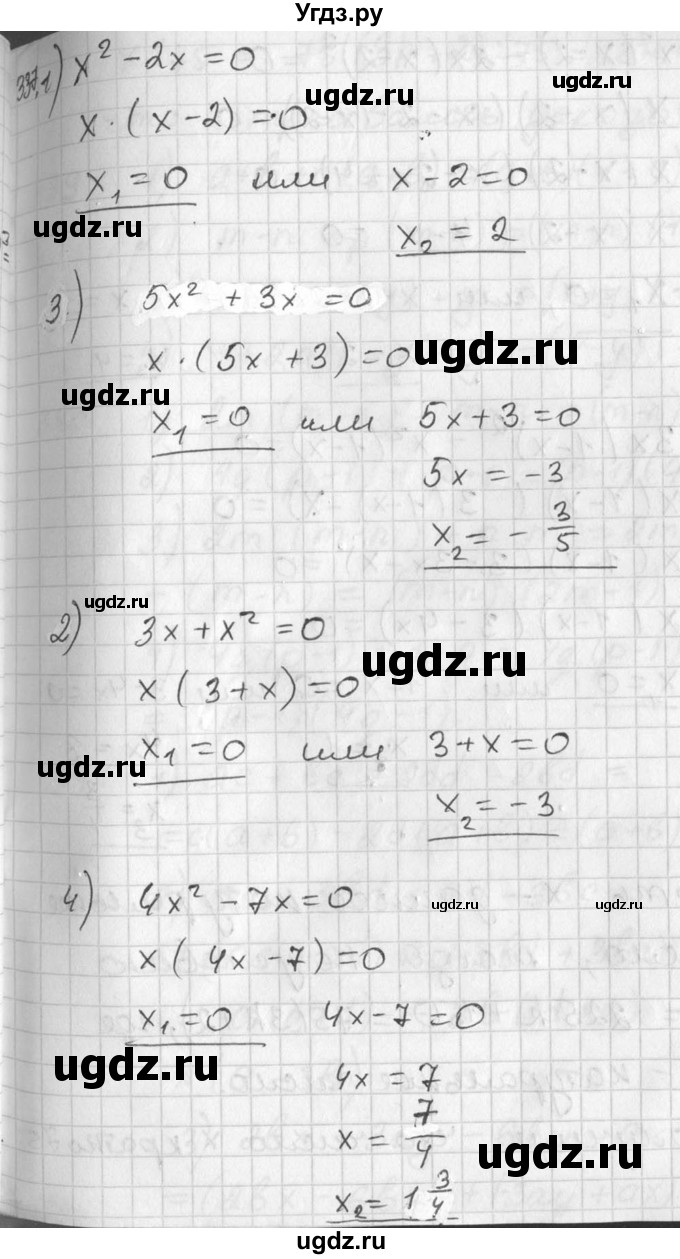 Угдз.ру
337.1) x² - 2x = 0
ugdz.ru
x · (x - 2) = 0
ugdz.ru
x₁ = 0 или x - 2 = 0
ugdz.ru
ugdz.ru
x₂ = 2
3.) 5x² + 3x = 0
x · (5x + 3) = 0
ugdz.ru
ugdz.ru
x₁ = 0 или 5x + 3 = 0
5x = -3
x₂ = - 3/5
ugdz.ru
2) 3x + x² = 0
x (3 + x) = 0
ugdz.ru
x₁ = 0 или 3 + x = 0
ugdz.ru
x₂ = -3
4) 4x² - 7x = 0
ugdz.ru
ugdz.ru
x (4x - 7) = 0
x₁ = 0 4x - 7 = 0
ugdz.ru
4x = 7
x = 7/4
ugdz.ru
x₂ = 1 3/4
ugdz.ru